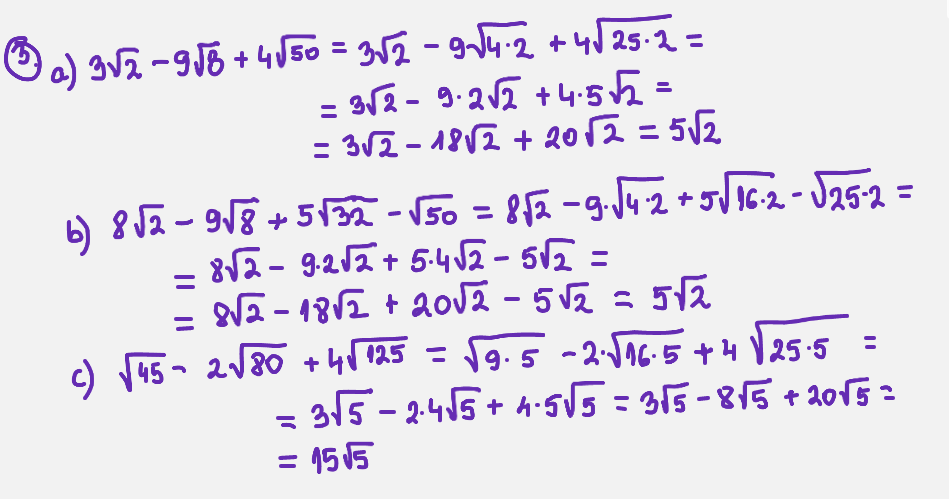 3. a) 3√2 - 9√8 + 4√50 = 3√2 - 9√4·2 + 4√25·2 =
= 3√2 - 9·2√2 + 4·5√2 =
= 3√2 - 18√2 + 20√2 = 5√2
b) 8√2 - 9√8 + 5√32 - √50 = 8√2 - 9·√4·2 + 5√16·2 - √25·2 =
= 8√2 - 9·2√2 + 5·4√2 - 5√2 =
= 8√2 - 18√2 + 20√2 - 5√2 = 5√2
c) √45 - 2√80 + 4√125 = √9·5 - 2·√16·5 + 4√25·5 =
= 3√5 - 2·4√5 + 4·5√5 = 3√5 - 8√5 + 20√5 =
= 15√5